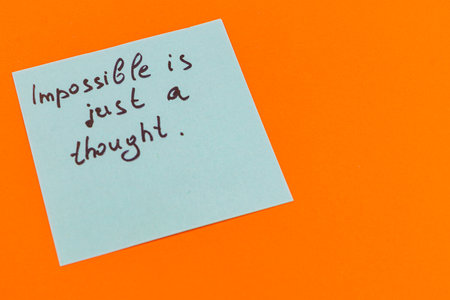 Impossible is
just a
thought.